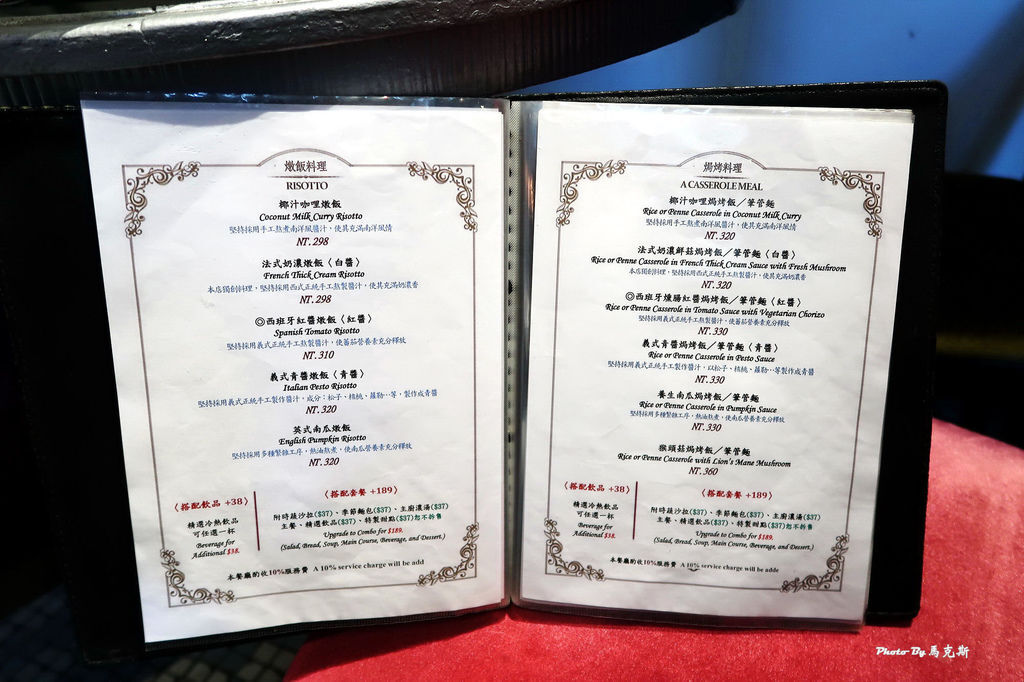 燉飯料理
RISOTTO
椰汁咖哩燉飯
Coconut Milk Curry Risotto
堅持採用手工熬煮南洋風醬汁，使其充滿南洋風情
NT. 298
法式奶濃燉飯〈白醬〉
French Thick Cream Risotto
本店獨創料理，堅持採用西式正統手工熬製醬汁，使其充滿奶濃香
NT. 298
◎西班牙紅醬燉飯〈紅醬〉
Spanish Tomato Risotto
堅持採用義式正統手工熬製醬汁，使蕃茄營養素充分釋放
NT. 310
義式青醬燉飯〈青醬〉
Italian Pesto Risotto
堅持採用義式正統手工製作醬汁，成分：松子、核桃、蘿勒…等，製作成青醬
NT. 320
英式南瓜燉飯
English Pumpkin Risotto
堅持採用多種繁雜工序，熱油熬煮，使南瓜營養素充分釋放
NT. 320
〈搭配飲品 +38〉
精選冷熱飲品
可任選一杯
Beverage for
Additional $38.
〈搭配套餐 +189〉
附時蔬沙拉($37)、季節麵包($37)、主廚濃湯($37)
主餐、精選飲品($37)、特製甜點($37)恕不拆售
Upgrade to Combo for $189.
(Salad, Bread, Soup, Main Course, Beverage, and Dessert.)
本餐廳酌收10%服務費 A 10% service charge will be add
焗烤料理
A CASSEROLE MEAL
椰汁咖哩焗烤飯／筆管麵
Rice or Penne Casserole in Coconut Milk Curry
堅持採用手工熬煮南洋風醬汁，使其充滿南洋風情
NT. 320
法式奶濃鮮菇焗烤飯／筆管麵〈白醬〉
Rice or Penne Casserole in French Thick Cream Sauce with Fresh Mushroom
本店獨創料理，堅持採用西式正統手工熬製醬汁，使其充滿奶濃香
NT. 320
◎西班牙燻腸紅醬焗烤飯／筆管麵〈紅醬〉
Rice or Penne Casserole in Tomato Sauce with Vegetarian Chorizo
堅持採用義式正統手工熬製醬汁，使蕃茄營養素充分釋放
NT. 330
義式青醬焗烤飯／筆管麵〈青醬〉
Rice or Penne Casserole in Pesto Sauce
堅持採用義式正統手工製作醬汁，以松子、核桃、蘿勒…等製作成青醬
NT. 330
養生南瓜焗烤飯／筆管麵
Rice or Penne Casserole in Pumpkin Sauce
堅持採用多種繁雜工序，熱油熬煮，使南瓜營養素充分釋放
NT. 330
猴頭菇焗烤飯／筆管麵
Rice or Penne Casserole with Lion's Mane Mushroom
NT. 360
〈搭配飲品 +38〉
精選冷熱飲品
可任選一杯
Beverage for
Additional $38.
〈搭配套餐 +189〉
附時蔬沙拉($37)、季節麵包($37)、主廚濃湯($37)
主餐、精選飲品($37)、特製甜點($37)恕不拆售
Upgrade to Combo for $189.
(Salad, Bread, Soup, Main Course, Beverage, and Dessert.)
本餐廳酌收10%服務費 A 10% service charge will be adde
Photo By 馬克斯